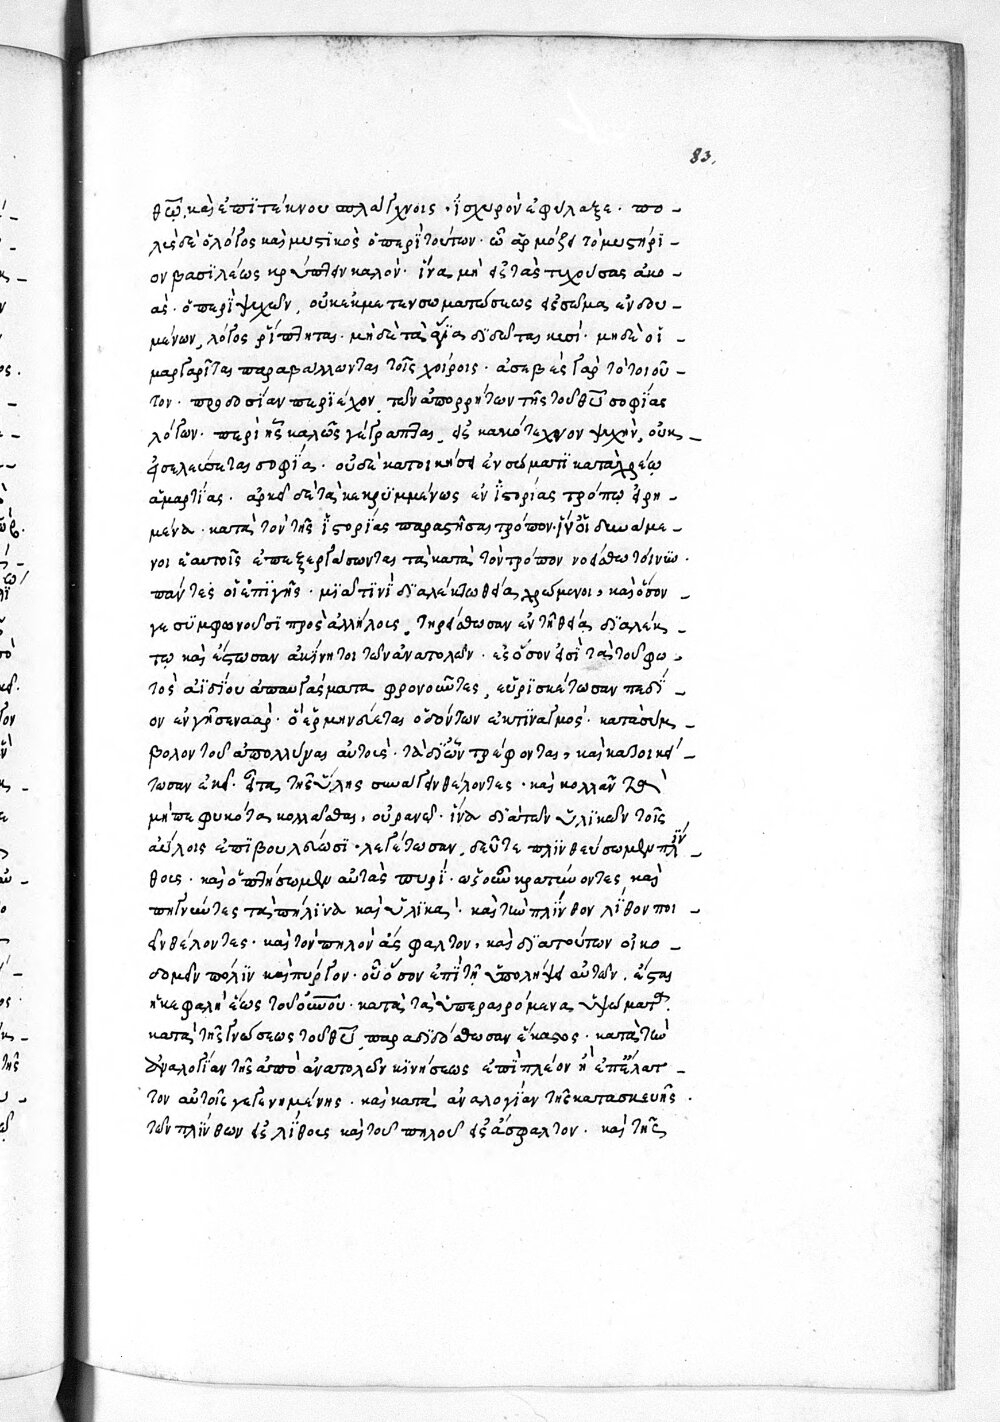 83.
θῶ, καὶ ἐπὶ τέκνου σπλάγχνοις ἰσχυρὸν ἐφύλαξε · πο -
λὺς δὲ ὁ λόγος καὶ μυστικὸς ὁ περὶ τούτων · ᾧ ἁρμόζει τὸ μυστήρι -
ον βασιλέως κρύπτειν καλόν · ἵνα μὴ εἰς τὰς τυχούσας ἀκο -
ὰς · ὁ περὶ ψυχῶν, οὐκ ἐκ μετενσωματώσεως εἰς σῶμα ἐνδυ -
μένων, λόγος ῥίπτηται · μηδὲ τὰ ἅγια δίδωται κυσί · μηδὲ οἱ -
μαργαρῖται παραβάλλωνται τοῖς χοίροις · ἀσεβὲς γὰρ τὸ τοιοῦ -
τον · προδοσίαν περιέχον, τῶν ἀπορρήτων τῆς τοῦ θῦ σοφίας
λόγων · περὶ ἧς καλῶς γέγραπται, εἰς κακότεχνον ψυχὴν, οὐκ -
εἰσελεύσεται σοφία · οὐδὲ κατοικήσει ἐν σώματι κατάχρεῳ
ἁμαρτίας · ἀρκεῖ δὲ τὰ κεκρυμμένως ἐν ἱστορίας τρόπῳ εἰρη -
μένα · κατὰ τὸν τῆς ἱστορίας παραστῆσαι τρόπον · ἵν' οἱ δυνάμε -
νοι ἑαυτοῖς ἐπεξεργάσωνται τὰ κατὰ τὸν τρόπον νοείσθωτοίνυν ·
πάντες οἱ ἐπὶ γῆς · μιᾷ τινὶ διαλέκτῳ θείᾳ χρώμενοι, καὶ ὅσον -
γε συμφωνοῦσι πρὸς ἀλλήλους, τηρείσθωσαν ἐν τῇ θείᾳ διαλέκ -
τῳ καὶ ἔστωσαν ἀκίνητοι τῶν ἀνατολῶν · ἐς ὅσον εἰσὶ τὰ τοῦ φω -
τὸς ἀϊδίου ἀπαυγάσματα φρονοῦντες, εὑρισκέτωσαν πεδί -
ον ἐν γῇ σενααρ · ὃ ἑρμηνεύεται ὀδόντων ἐκτιναγμός · κατὰ σύμ -
βολον τοῦ ἀπολλύναι αὐτοὺς · τὰ δι' ὧν τρέφονται, καὶ κατοικεί -
τωσαν ἐκεῖ · εἶτα τὰ τῆς ὕλης συνάγειν θέλοντες · καὶ κολλᾶν τὰ
μὴ πεφυκότα κολλᾶσθαι, οὐρανῷ · ἵνα διὰ τῶν ὑλικῶν τοῖς
ἀΰλοις ἐπιβουλεύωσι · λεγέτωσαν, δεῦτε πλινθεύσωμεν πλίν -
θους · καὶ ὀπτήσωμεν αὐτὰς πυρί · ὡς οὖν κρατύνοντες καὶ
πηγνύντες τὰ πήλινα καὶ ὑλικὰ · καὶ τὴν πλίνθον λίθον ποι -
εῖν θέλοντες · καὶ τὸν πηλὸν ἄσφαλτον, καὶ διὰ τούτων οἰκο -
δομεῖν πόλιν καὶ πύργον · οὗ ὅσον ἐπὶ τῇ ὑπολήψει αὐτῶν, ἔσται
ἡ κεφαλὴ ἕως τοῦ οὐνοῦ · κατὰ τὰ ὑπεραιρόμενα ὑψώματα
κατὰ τῆς γνώσεως τοῦ θῦ παραδιδόσθωσαν ἕκαστος · κατὰ τὴν
ἀναλογίαν τῆς ἀπὸ ἀνατολῶν κινήσεως ἐπὶ πλεῖον ἢ ἐπ' ἔλατ -
τον αὐτοῖς γεγενημένης · καὶ κατὰ ἀναλογίαν τῆς κατασκευῆς ·
τῶν πλίνθων εἰς λίθους καὶ τοῦ πηλοῦ εἰς ἄσφαλτον · καὶ τῆς